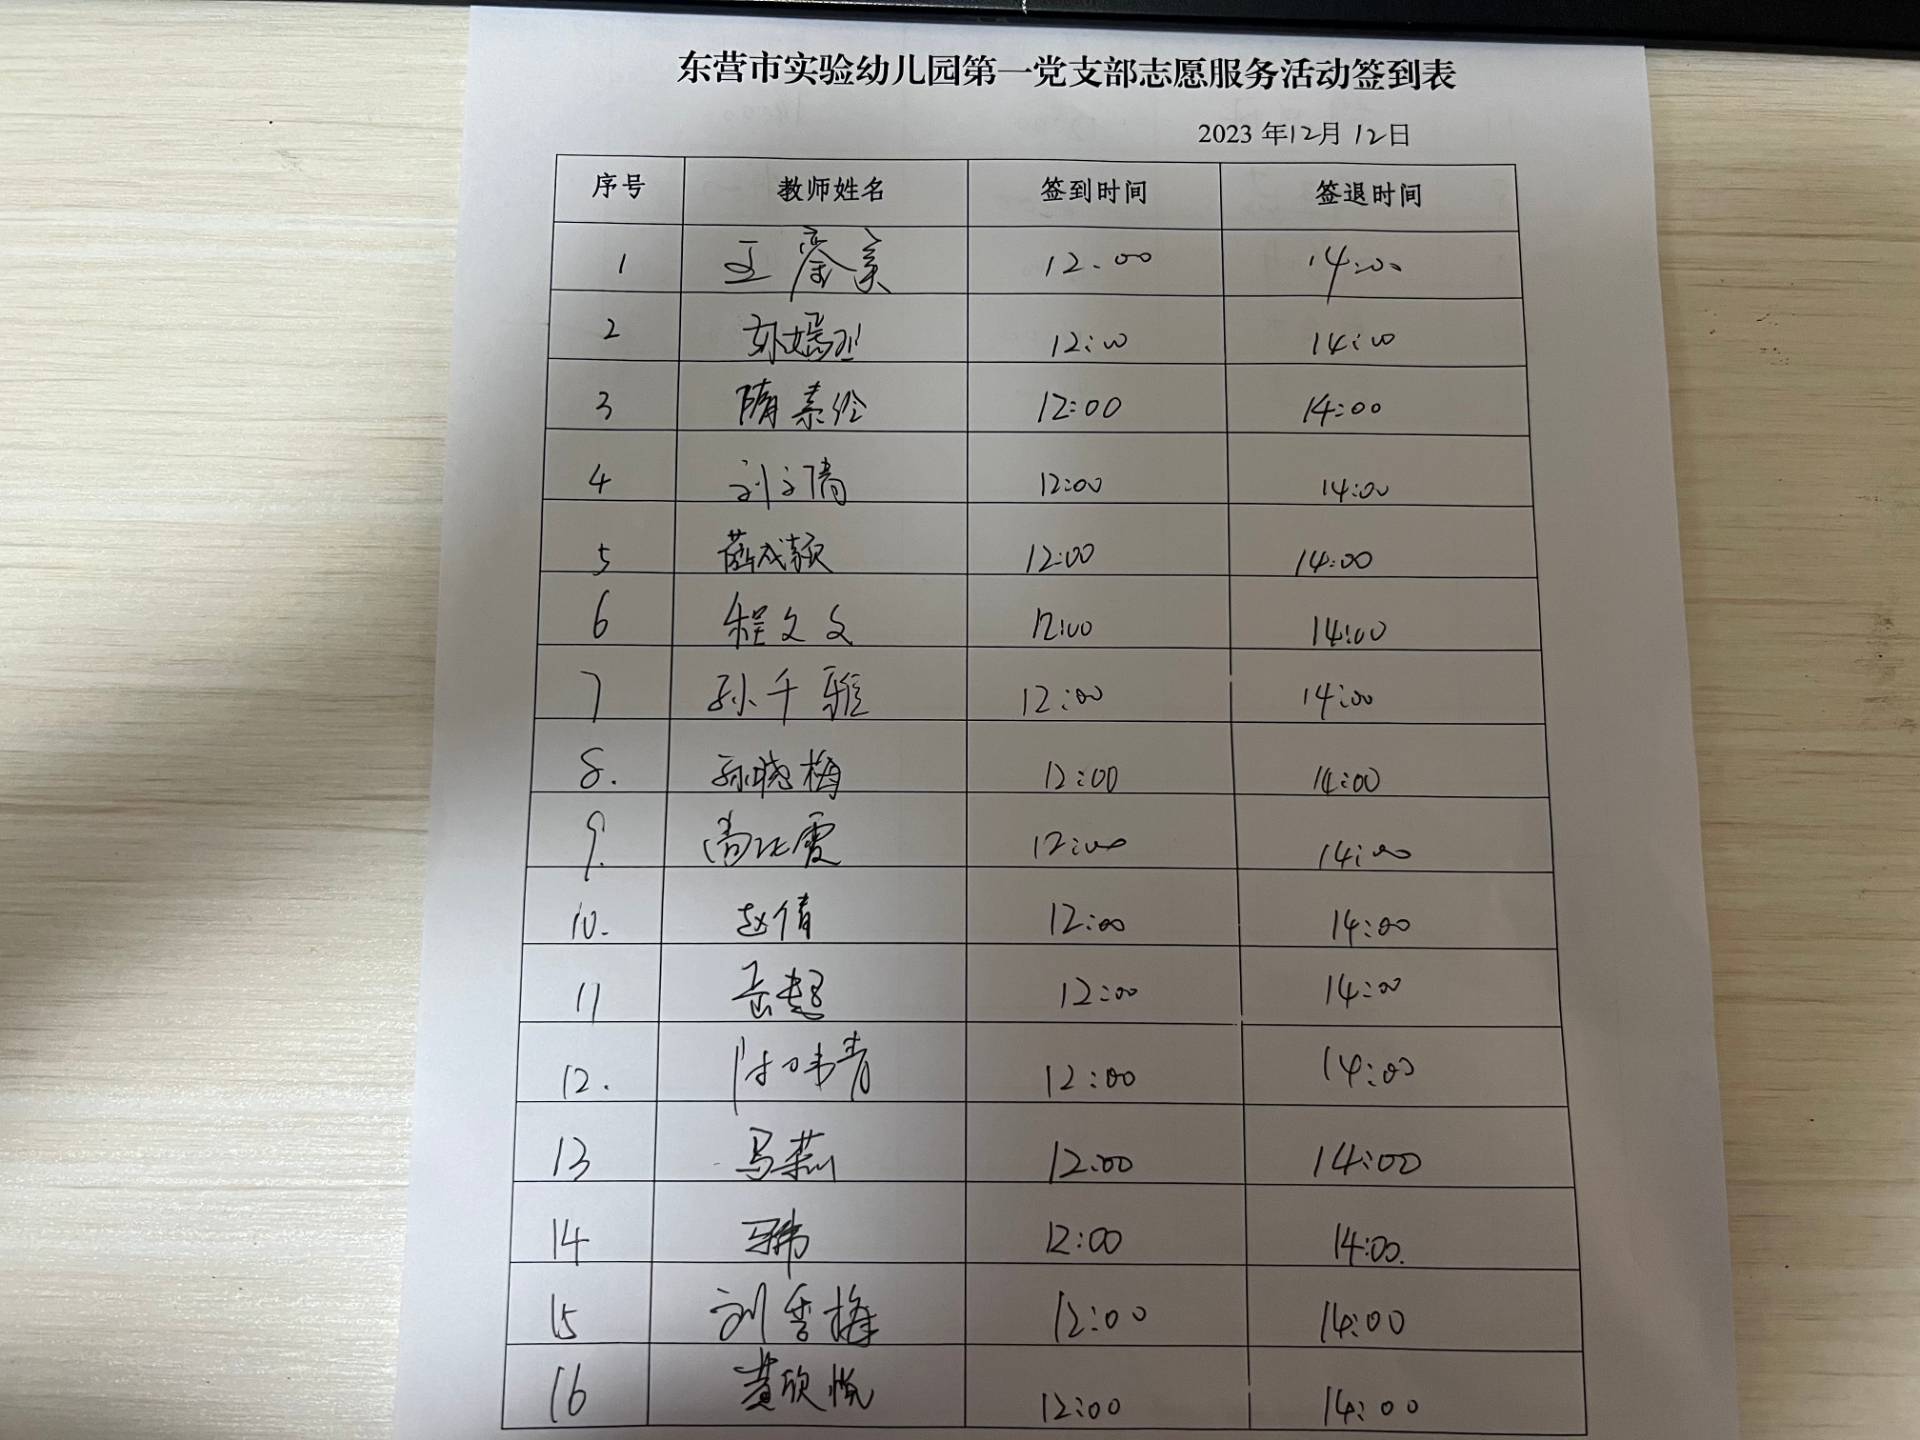 东营市实验幼儿园第一党支部志愿服务活动签到表
2023 年12月12日
序号 教师姓名 签到时间 签退时间
1 王 美 12.00 14:00
2 12:00 14:00
3 隋素伶 12:00 14:00
4 刘文倩 12:00 14:00
5 薛成颖 12:00 14:00
6 程文文 12:00 14:00
7 孙千雅 12:00 14:00
8. 孙晓梅 12:00 14:00
9. 尚 霞 12:00 14:00
10. 赵倩 12:00 14:00
11 岳超 12:00 14:00
12. 青 12:00 14:00
13 马燕 12:00 14:00
14 马伟 12:00 14:00.
15 刘雪梅 12:00 14:00
16 黄欣悦 12:00 14:00